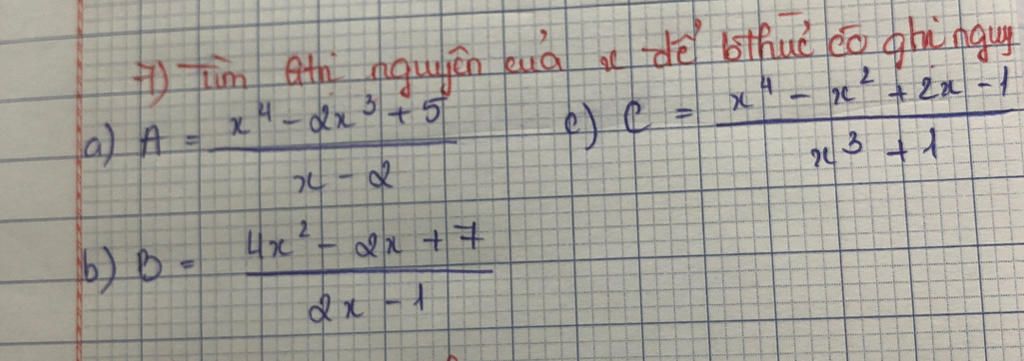 7) Tìm gtri nguyên của x để bthức có gtri nguy
a) A = \frac{x^4 - 2x^3 + 5}{x - 2} c) C = \frac{x^4 - x^2 + 2x - 1}{x^3 + 1}
b) B = \frac{4x^2 - 2x + 7}{2x - 1}